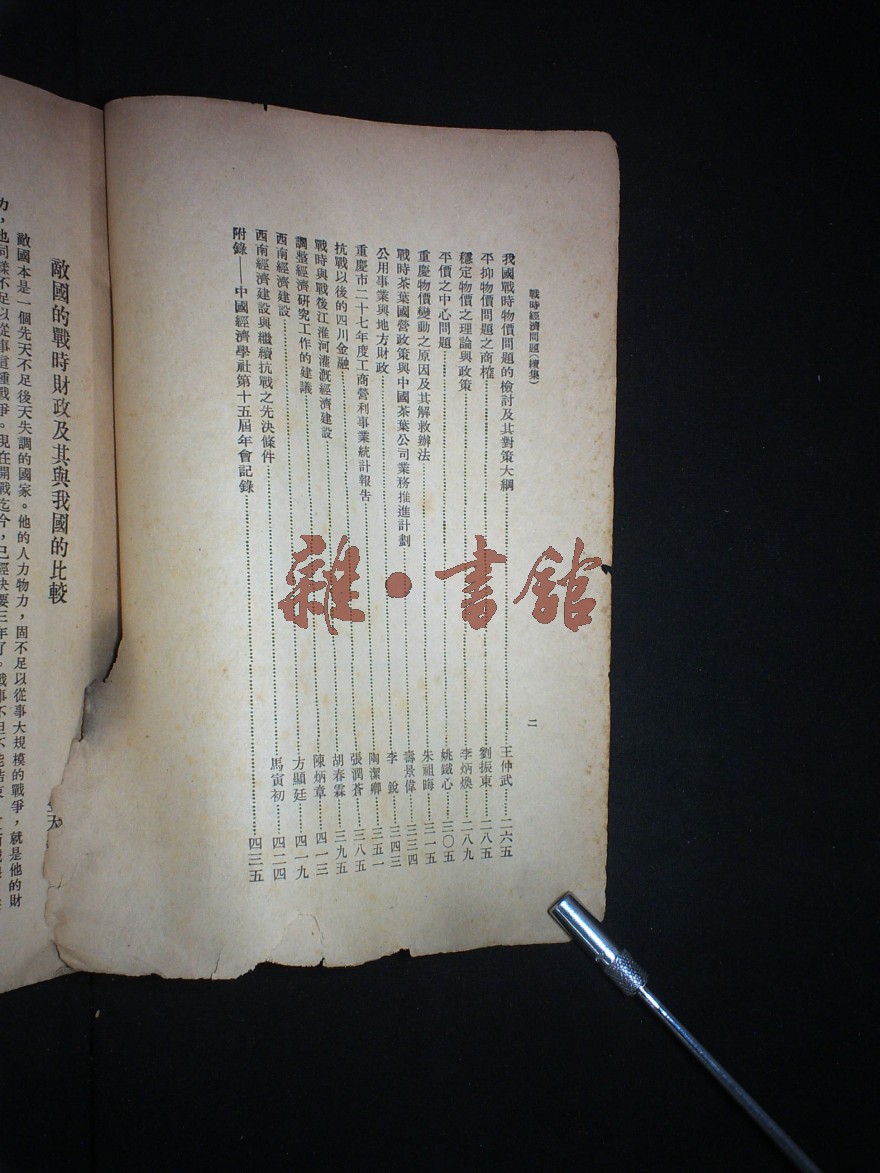 戰時經濟問題(續集) 二
我國戰時物價問題的檢討及其對策大綱……王仲武…二六五
平抑物價問題之商榷……劉振東…二八五
穩定物價之理論與政策……李炳煥…二八九
平價之中心問題……姚鐵心…三〇五
重慶物價變動之原因及其解救辦法……朱祖晦…三一五
戰時茶葉國營政策與中國茶葉公司業務推進計劃……壽景偉…三三四
公用事業與地方財政……李 銳…三四三
重慶市二十七年度工商營利事業統計報告……陶潔卿…三五一
抗戰以後的四川金融……張潤蒼…三八五
戰時與戰後江淮河灌溉經濟建設……胡春霖…三九五
調整經濟研究工作的建議……陳炳章…四一三
西南經濟建設……方顯廷…四一九
西南經濟建設與繼續抗戰之先決條件……馬寅初…四二四
附錄——中國經濟學社第十五屆年會記錄……四三五
雜·書館
敵國的戰時財政及其與我國的比較
敵國本是一個先天不足後天失調的國家。他的人力物力，固不足以從事大規模的戰爭，就是他的財
力，也同樣不足以從事這種戰爭。現在開戰迄今，已經快要三年了。戰事不但不能結束，